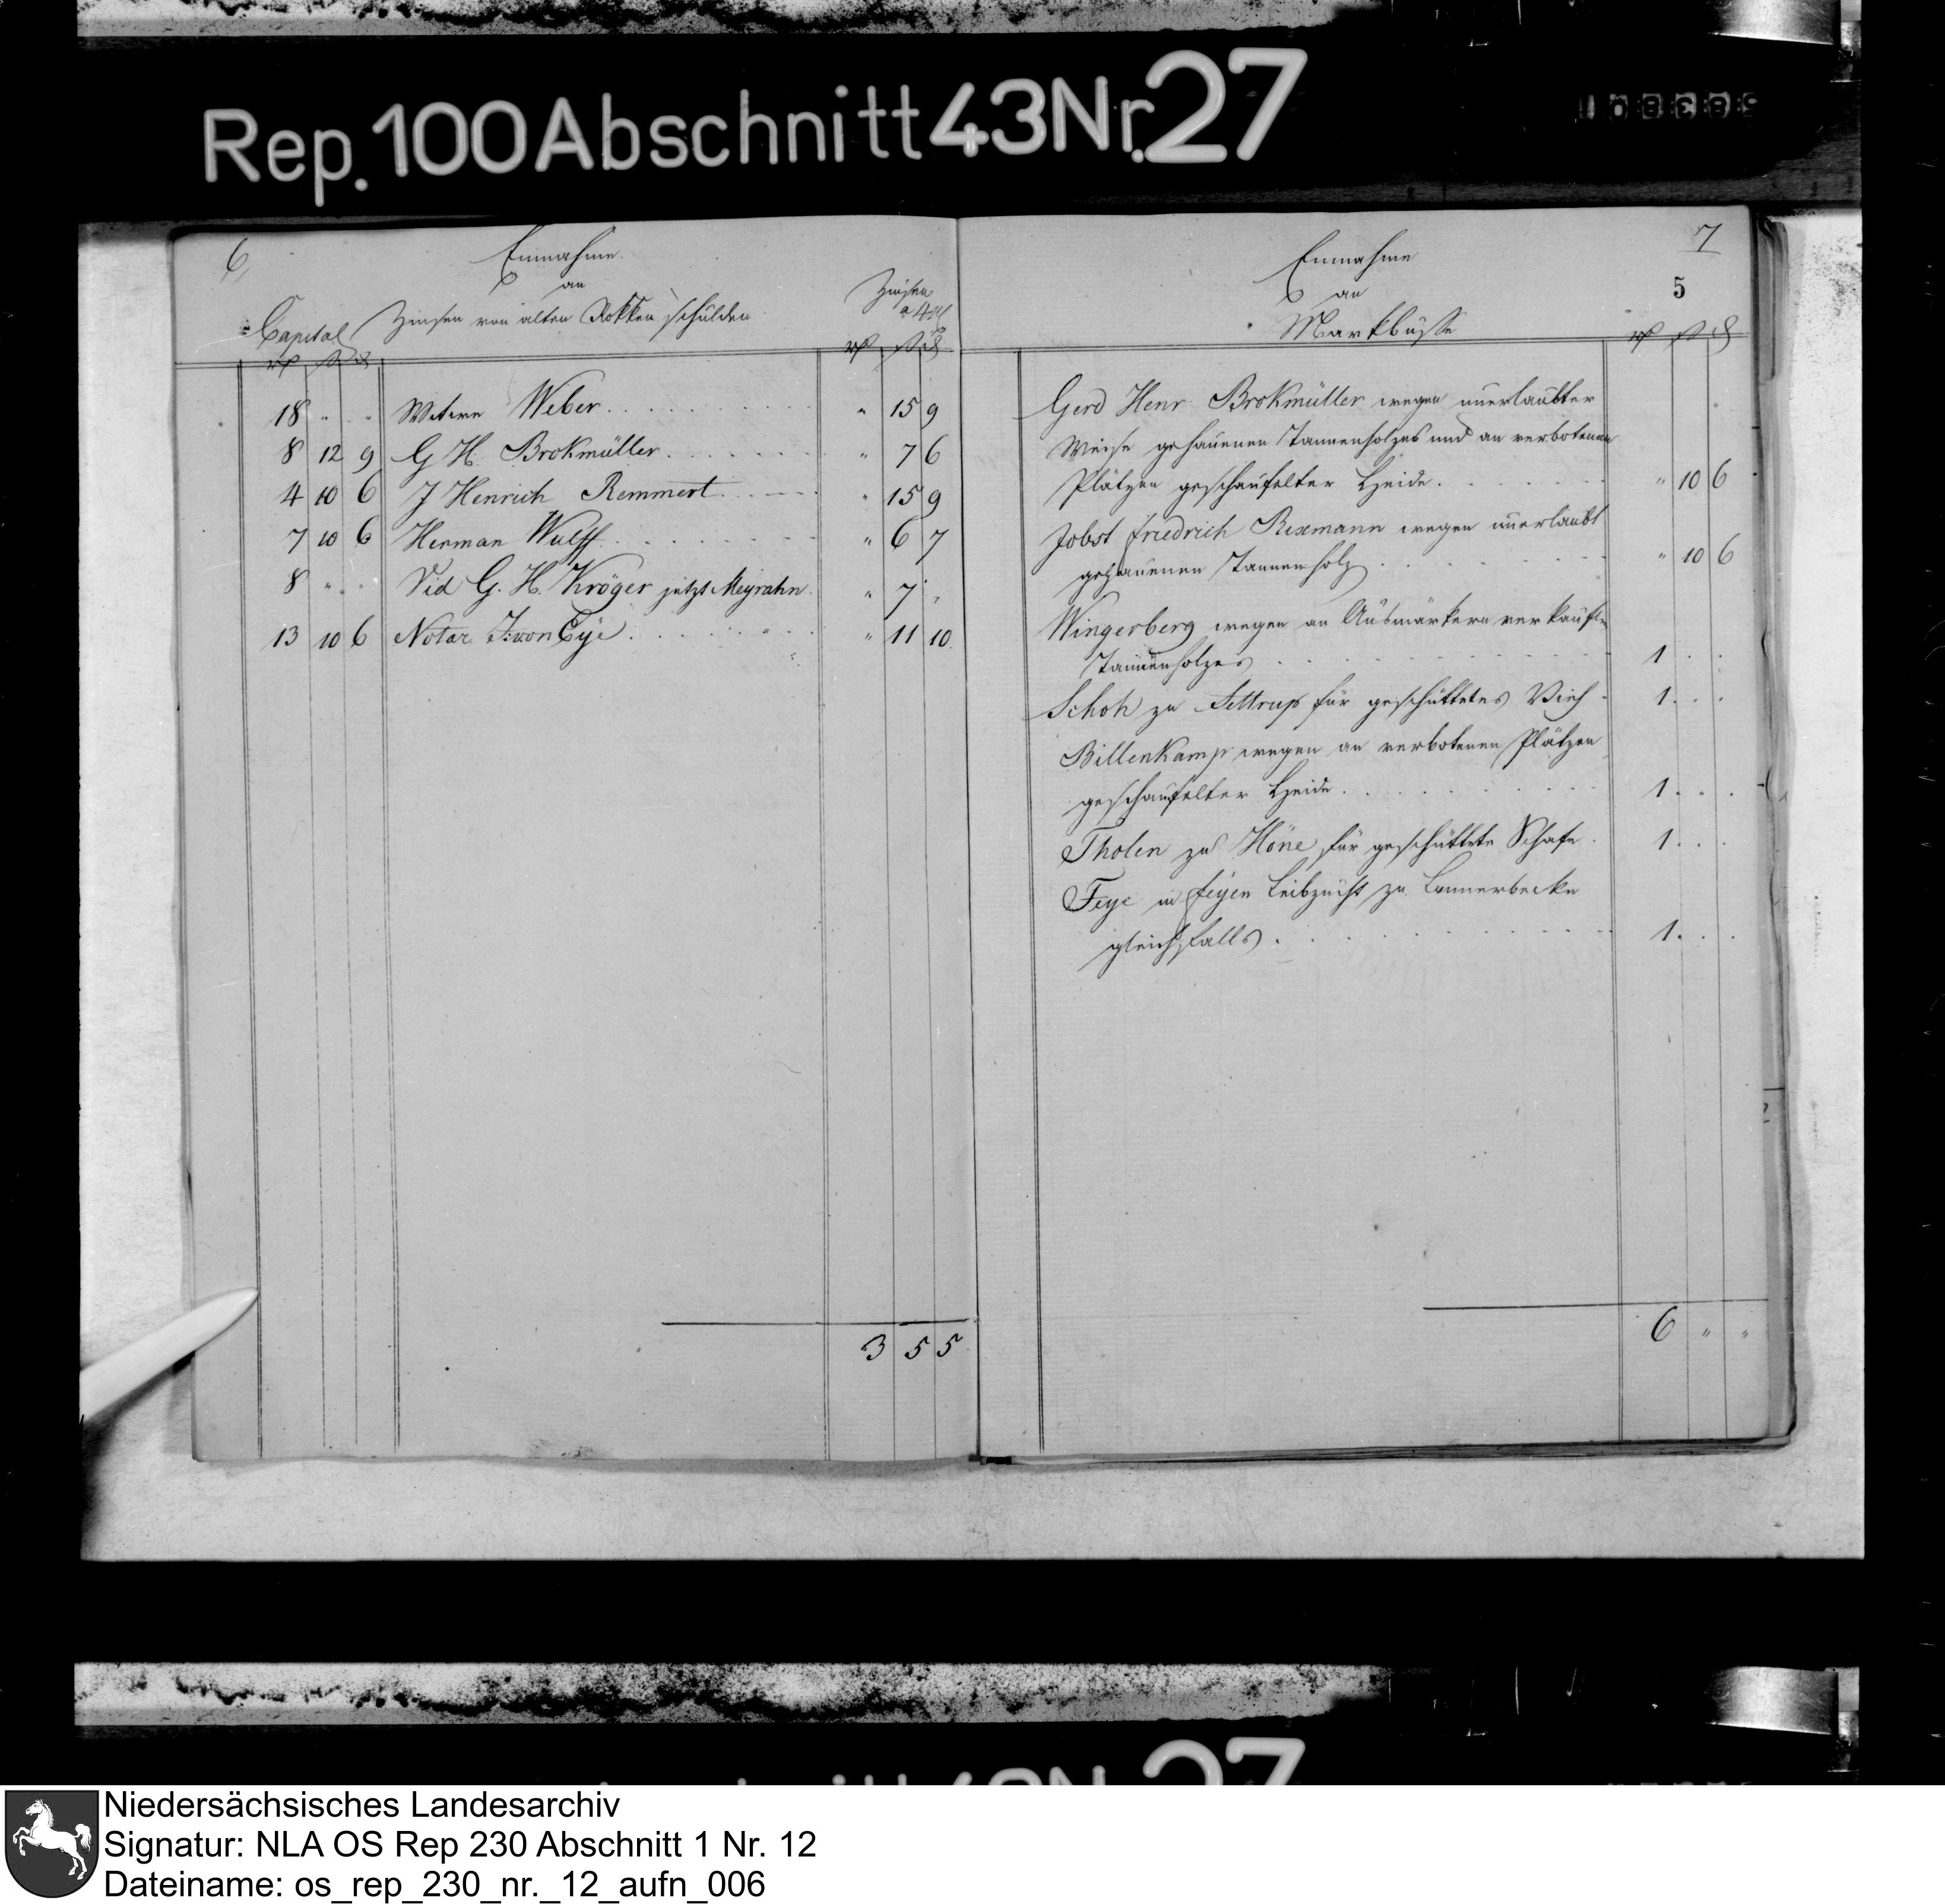 Rep. 100 Abschnitt 43 Nr. 27
6
Einnahme
an
Capital Zinsen von alten Rokken schulden Zinsen
18 " " Witwe Weber " 15 9
8 12 9 G H. Brokmüller " 7 6
4 10 6 J Henrich Remmert " 15 9
7 10 6 Herman Wulff " 6 7
8 " " Vid G. H. Kröger jetzt Meyrahn " 7 "
13 10 6 Notar von Eye " 11 10
3 5 5
7
5
Einnahme
an
Markbüsse
Gerd Henr Brokmüller wegen unerlaubter
Weise gehauenen Tannenholzes und an verbotenen
Plätzen geschaufelter Heide " 10 6
Jobst Friedrich Rexmann wegen unerlaubt
gehauenen Tannenholz " 10 6
Wingerberg wegen an Ausmärkern verkauften
Tannenholzes 1
Schoh zu Settrup für geschüttetes Vieh 1
Billenkamp wegen an verbotenen Plätzen
geschaufelter Heide 1
Tholen zu Höne für geschüttete Schafe 1
Feye in Feyen Leibzucht zu Lonnerbecke
gleichfalls 1
6 " "
Niedersächsisches Landesarchiv
Signatur: NLA OS Rep 230 Abschnitt 1 Nr. 12
Dateiname: os_rep_230_nr._12_aufn_006